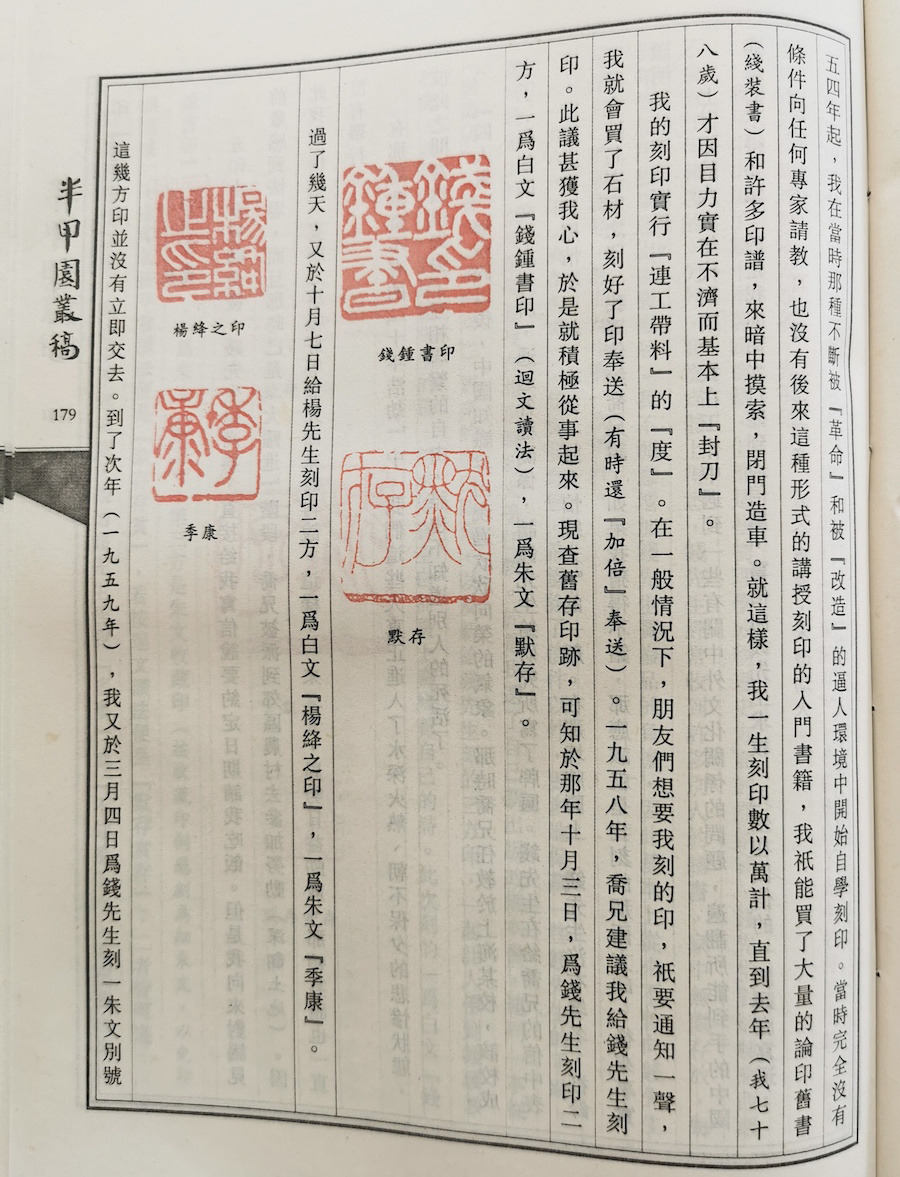 五四年起，我在當時那種不斷被『革命』和被『改造』的逼人環境中開始自學刻印。當時完全沒有
條件向任何專家請教，也沒有後來這種形式的講授刻印的入門書籍，我祇能買了大量的論印舊書
（綫裝書）和許多印譜，來暗中摸索，閉門造車。就這樣，我一生刻印數以萬計，直到去年（我七十
八歲）才因目力實在不濟而基本上『封刀』。
我的刻印實行『連工帶料』的『度』。在一般情況下，朋友們想要我刻的印，祇要通知一聲，
我就會買了石材，刻好了印奉送（有時還『加倍』奉送）。一九五八年，喬兄建議我給錢先生刻
印。此議甚獲我心，於是就積極從事起來。現查舊存印跡，可知於那年十月三日，爲錢先生刻印二
方，一爲白文『錢鍾書印』（迴文讀法），一爲朱文『默存』。
錢鍾書印
錢鍾書印
默存
默存
過了幾天，又於十月七日給楊先生刻印二方，一爲白文『楊絳之印』，一爲朱文『季康』。
楊絳之印
楊絳之印
季康
季康
這幾方印並沒有立即交去。到了次年（一九五九年），我又於三月四日爲錢先生刻一朱文別號
半甲園叢稿
179